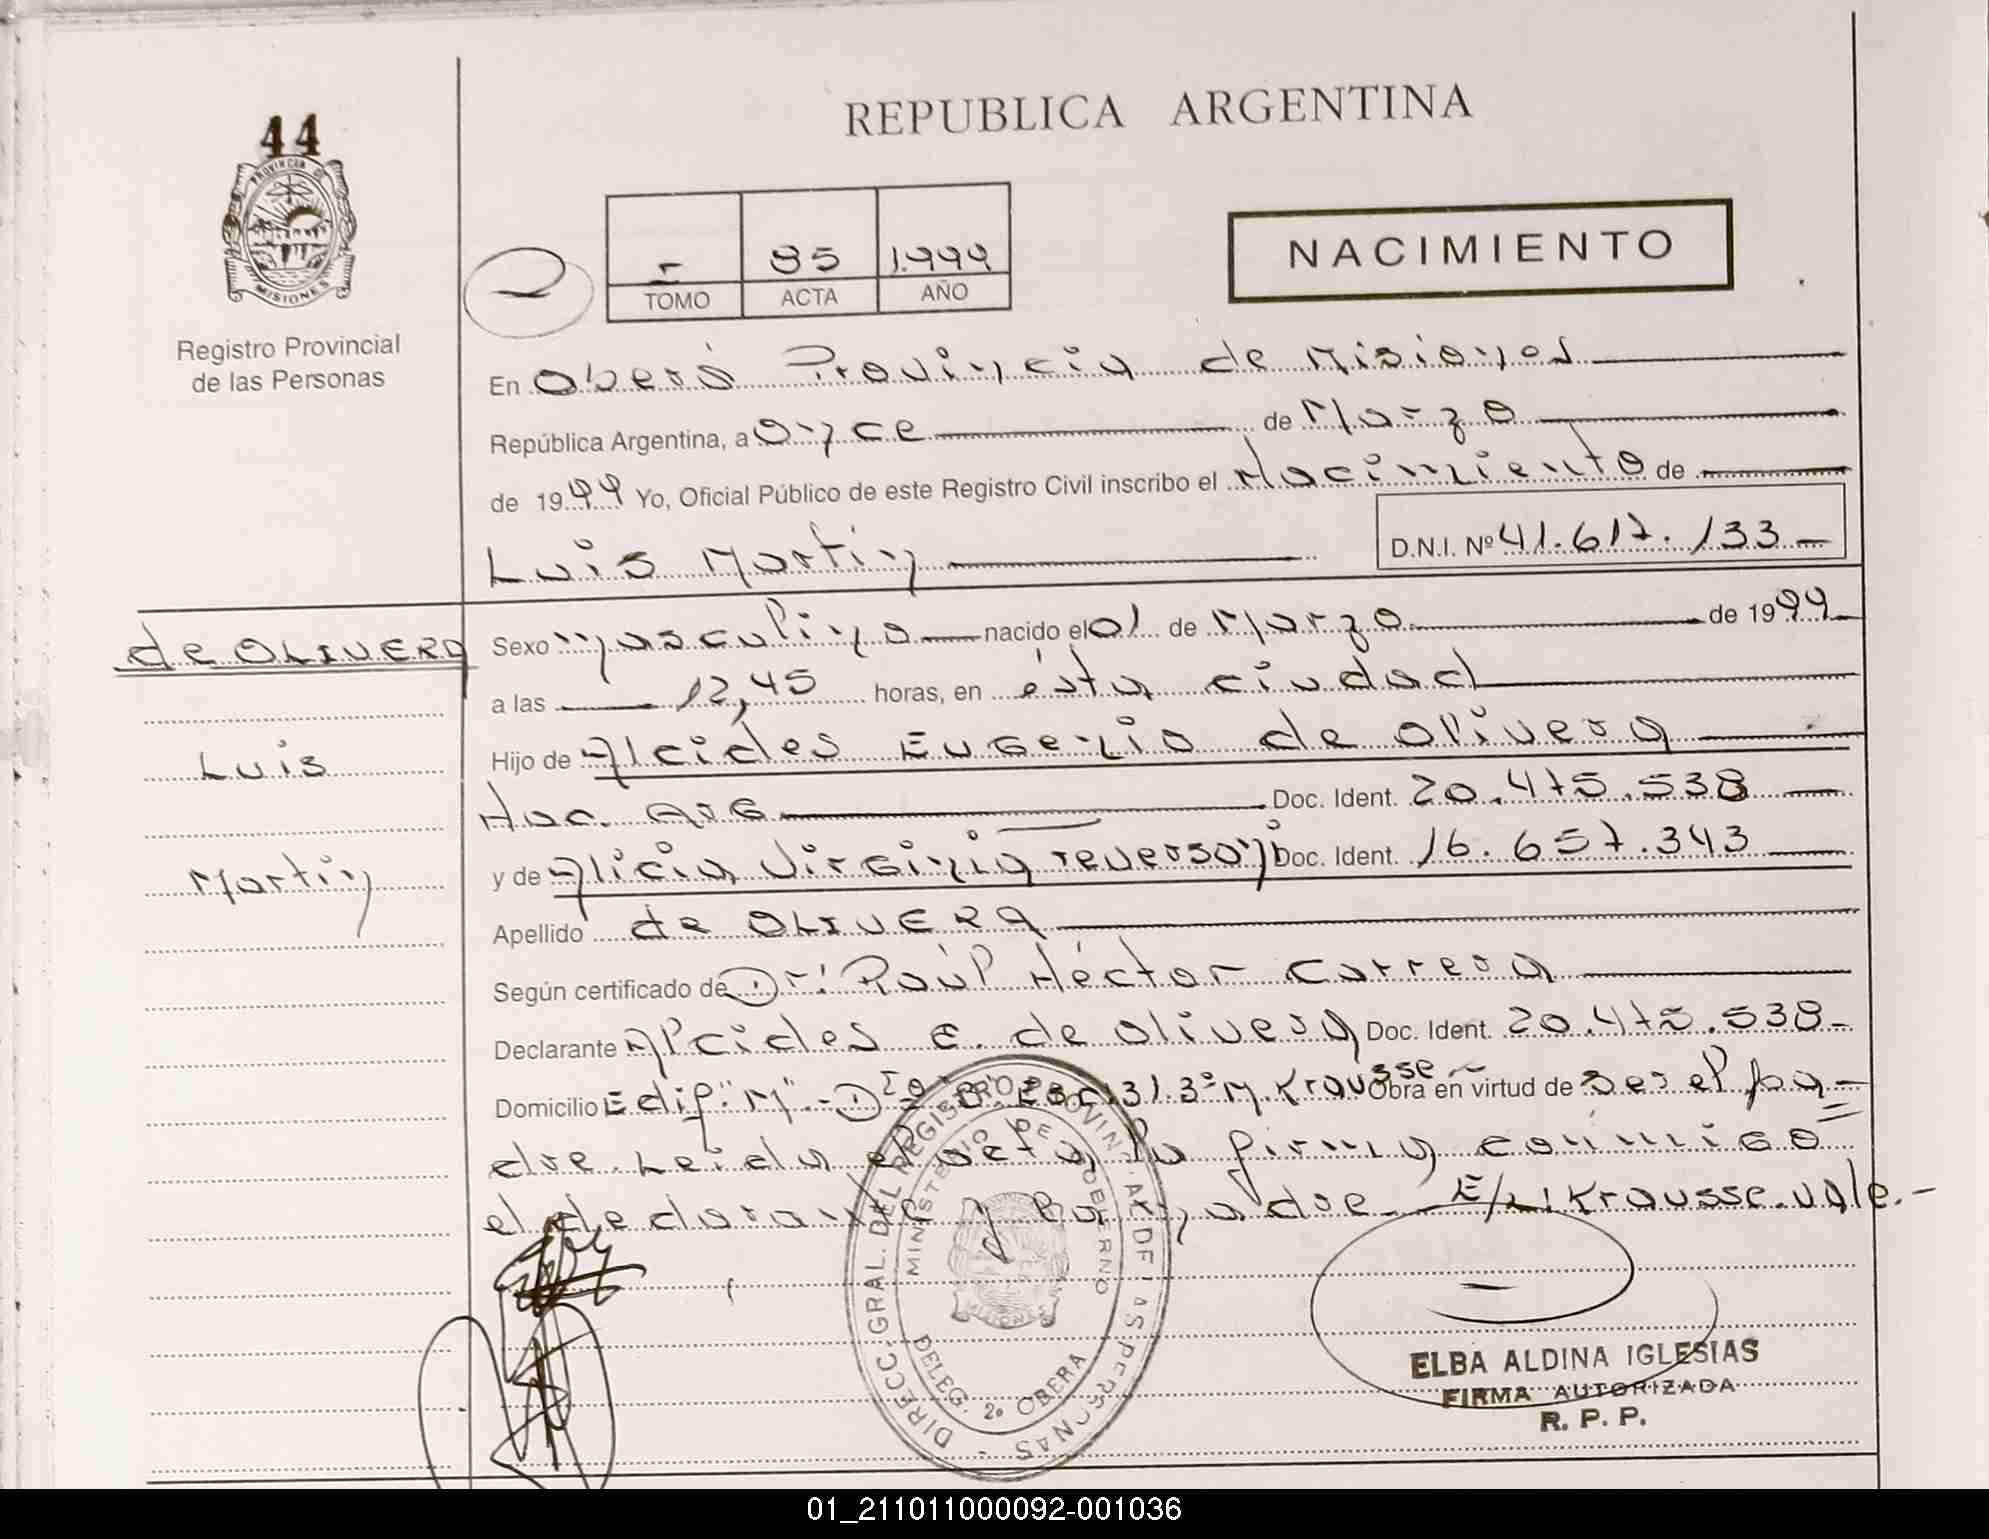 44
PROVINCIA DE
MISIONES
Registro Provincial
de las Personas
REPUBLICA ARGENTINA
- 85 1.999
TOMO ACTA AÑO
NACIMIENTO
En Oberá Provincia de Misiones
República Argentina, a once de Marzo
de 1999 Yo, Oficial Público de este Registro Civil inscribo el Nacimiento de
Luis Martin
D.N.I. Nº 41.617.133-
de OLIVERA
Luis
Martin
Sexo masculino nacido el 01 de Marzo de 1999
a las 12,45 horas, en ésta ciudad
Hijo de Alcides Eugenio de Olivera
Nac. Arg Doc. Ident. 20.475.538
y de Alicia Virginia Doc. Ident. 16.657.343
Apellido de OLIVERA
Según certificado de Dr: Raúl Héctor Correra
Declarante Alcides E. de Olivera Doc. Ident. 20.475.538-
Domicilio Edif "M"- Esc. 31.3º M. Krausse Obra en virtud de ser el pa-
dre. Leida el acta, la firma conmigo
el declarante y la madre. E/L: Krausse. vale.-
DIRECC. GRAL. DEL REGISTRO PROVINCIAL DE LAS PERSONAS
MINISTERIO DE GOBERNO
MISIONES
DELEG. 2º OBERA
ELBA ALDINA IGLESIAS
FIRMA AUTORIZADA
R. P. P.
01_211011000092-001036